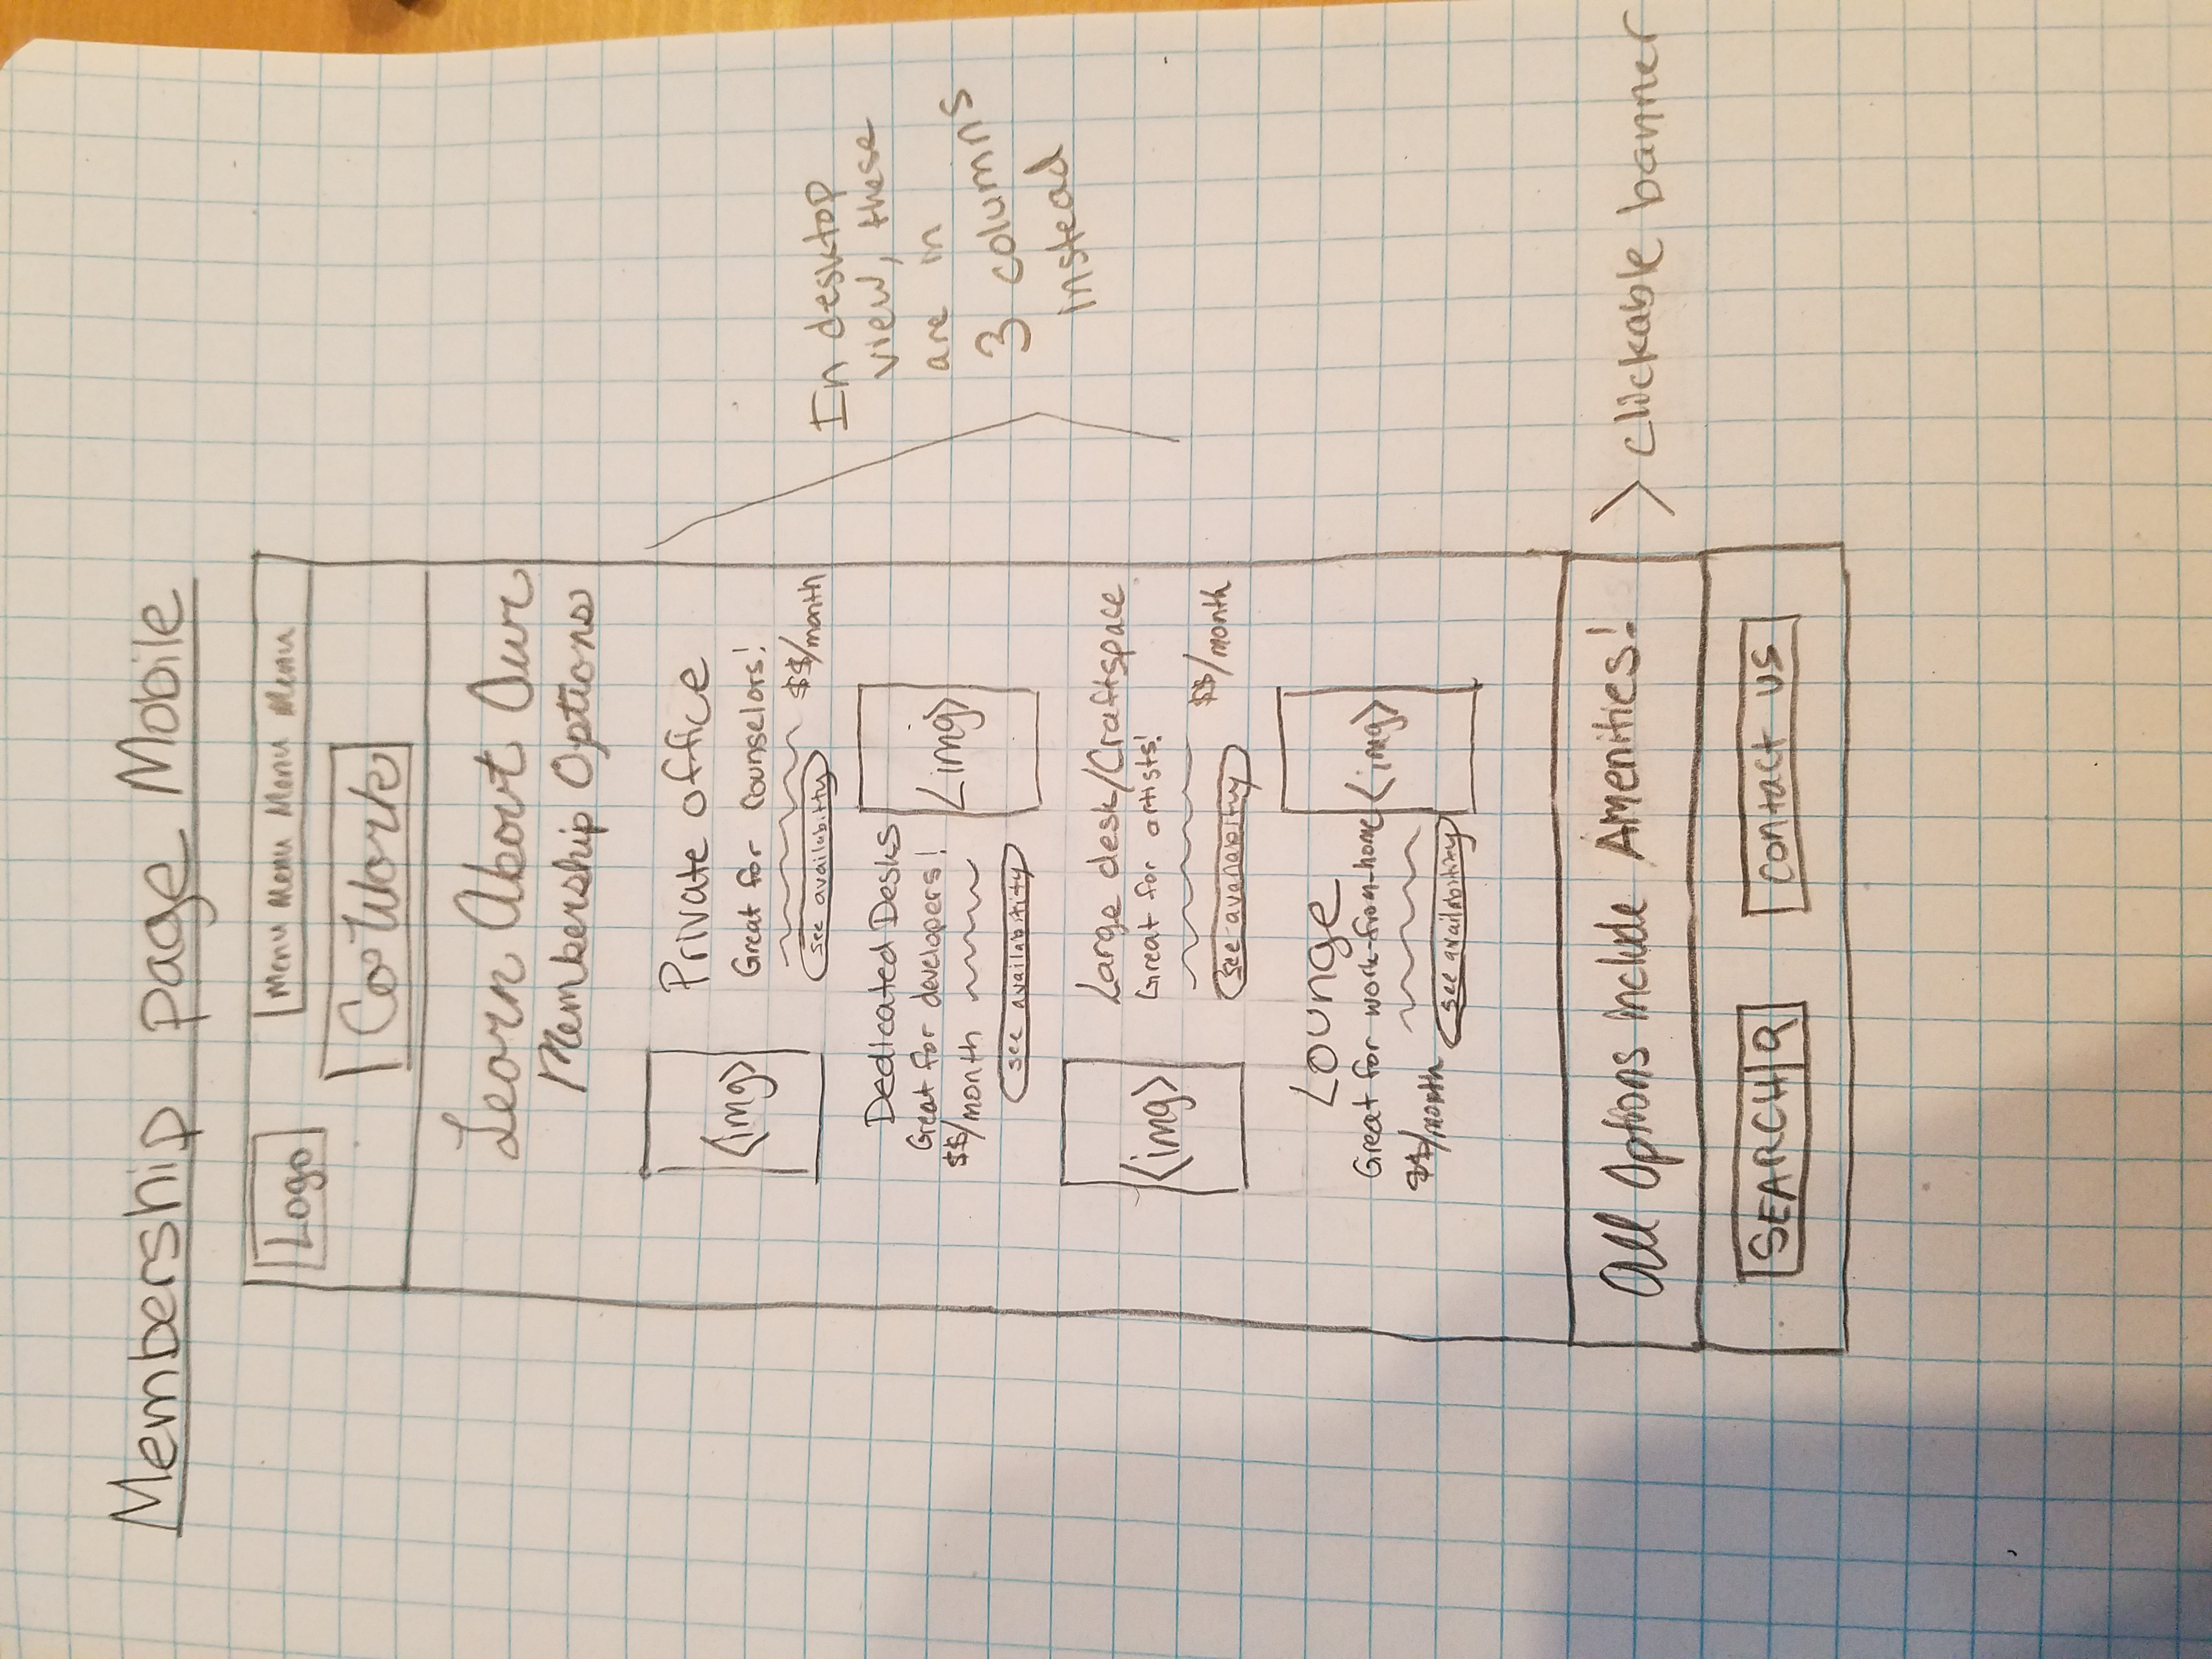 Membership page Mobile
Logo
Menu Menu Menu Menu
CoWork
Learn About Our
Membership Options
<img>
Private office
Great for counselors!
$$/month
see availability
Dedicated Desks
Great for developers!
$$/month
see availability
<img>
In desktop
view, these
are in
3 columns
instead
<img>
Large desk/Craftspace
Great for artists!
$$/month
see availability
Lounge
Great for work-from-home
$$/month
see availability
<img>
All Options include Amenities!
> clickable banner
SEARCH
Contact us